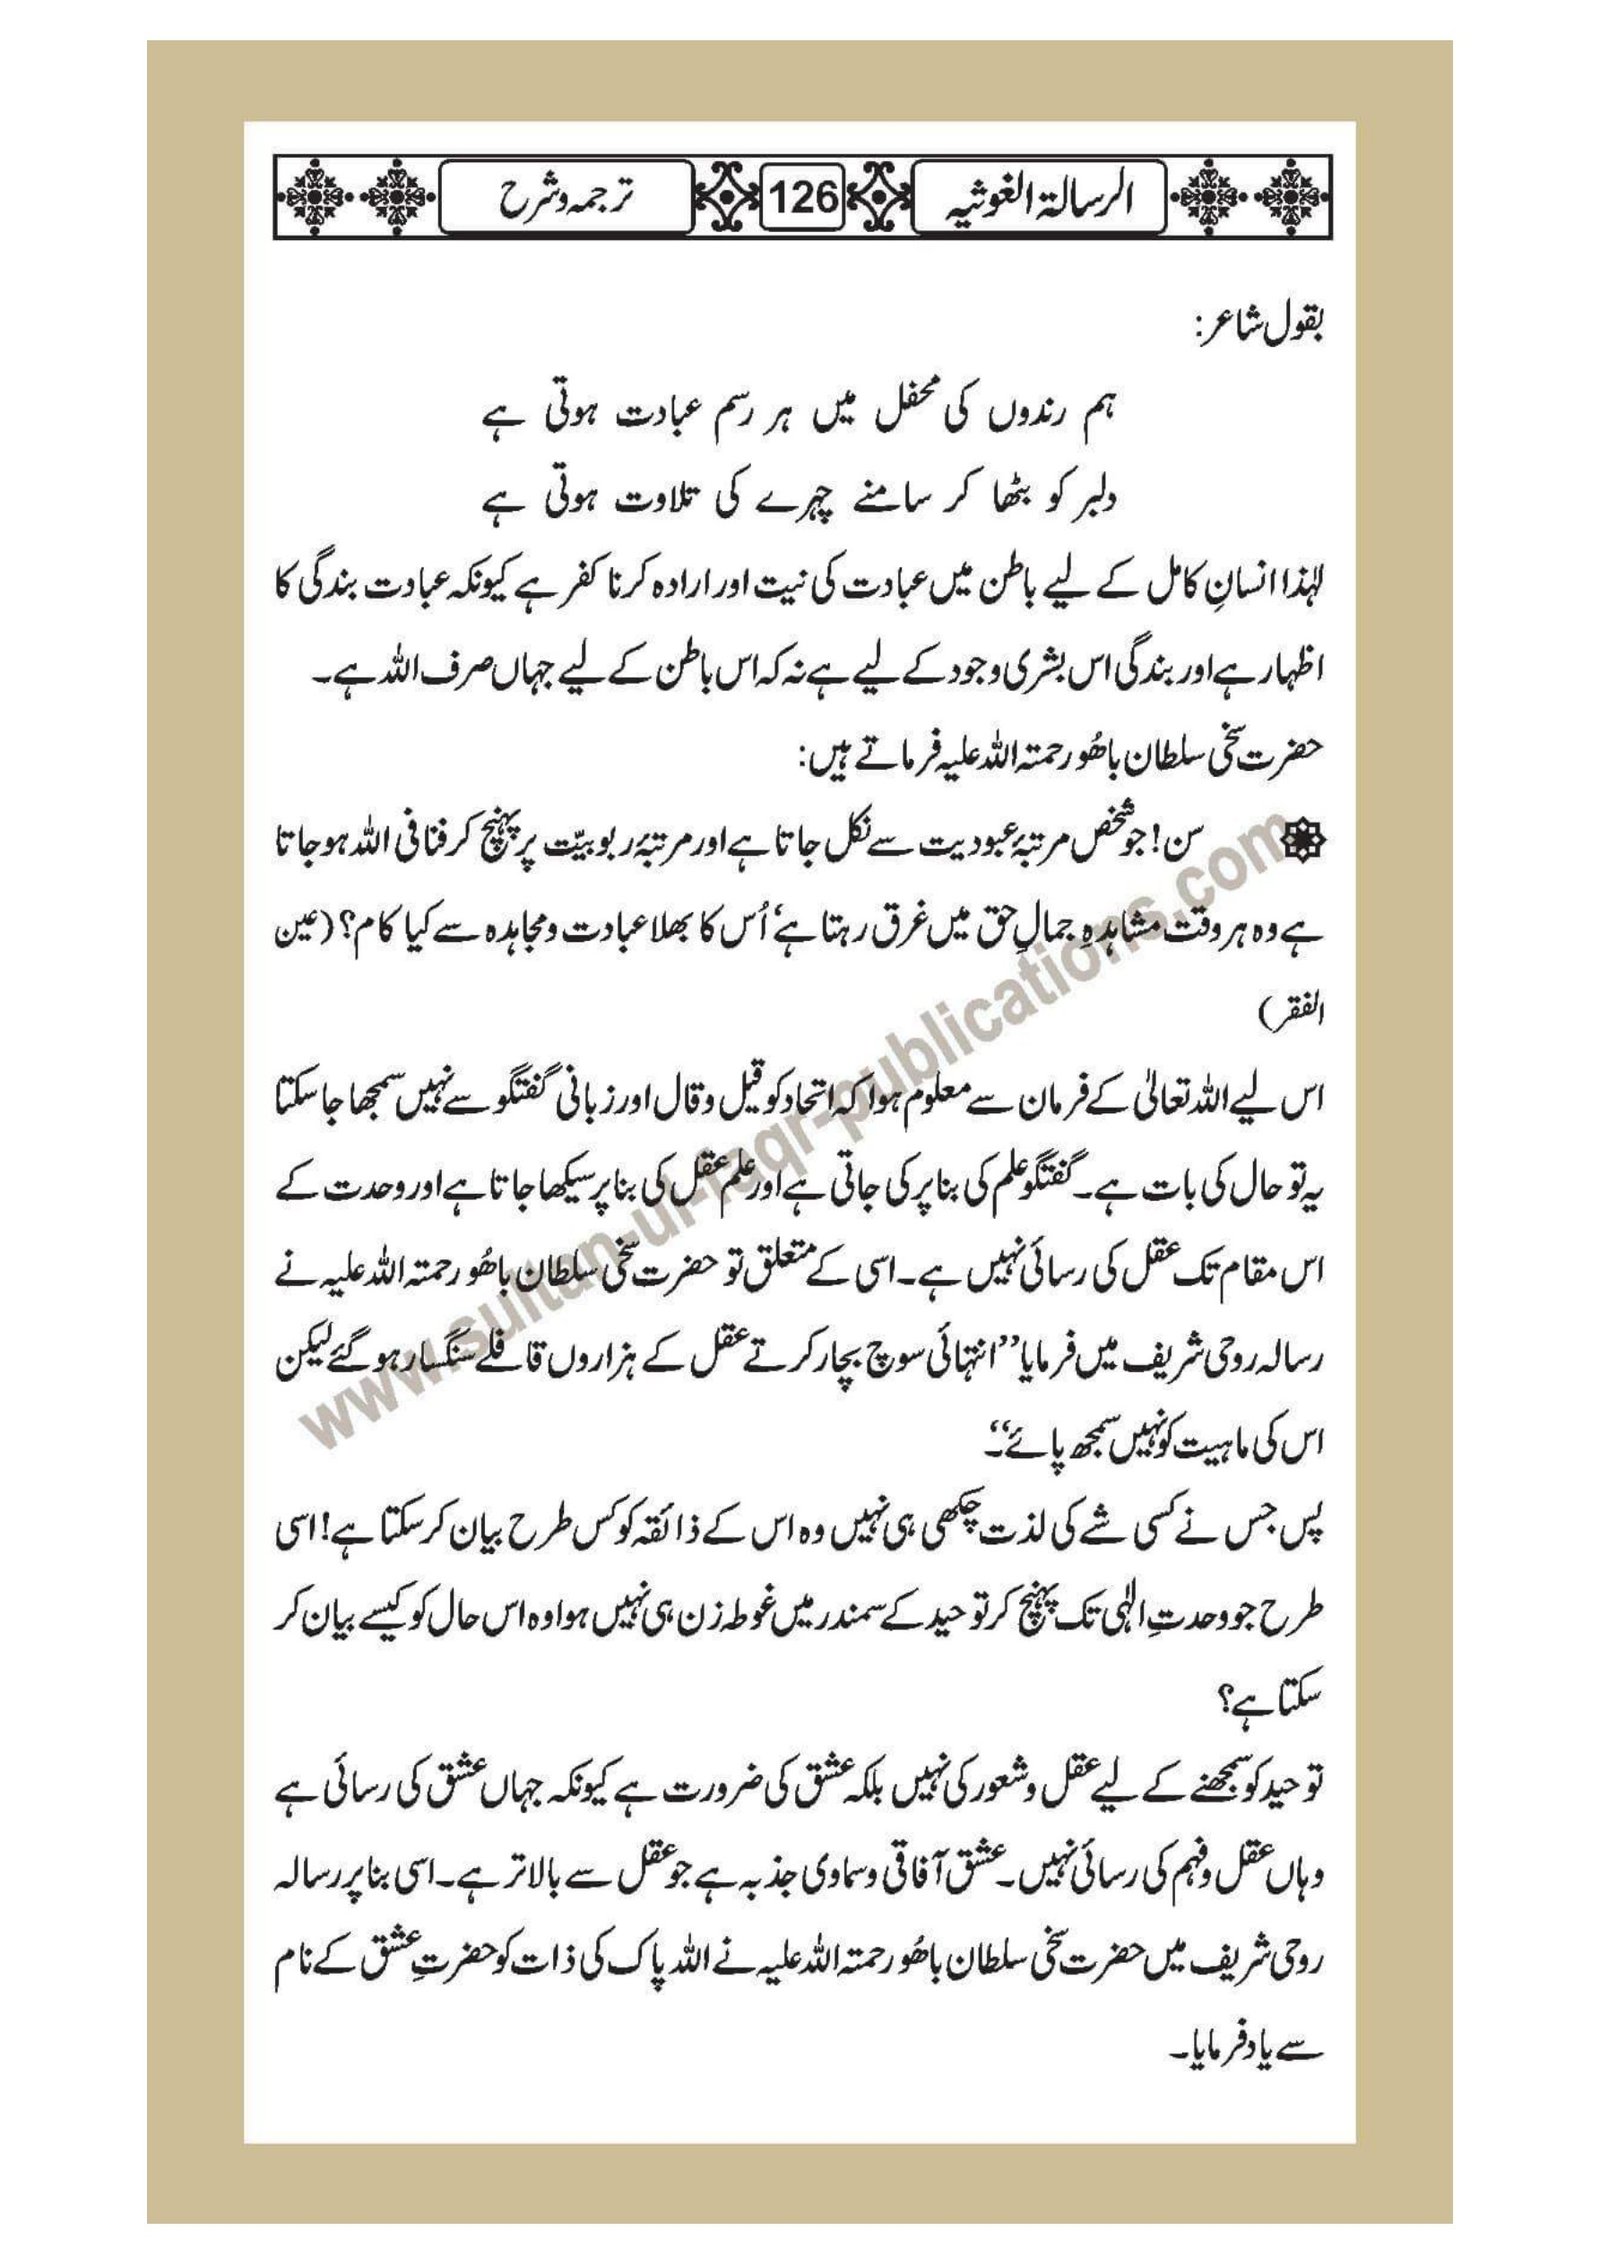 الرسالۃ الغوثیہ 126 ترجمہ و شرح
بقول شاعر:
ہم رندوں کی محفل میں ہر رسم عبادت ہوتی ہے
دلبر کو بٹھا کر سامنے چہرے کی تلاوت ہوتی ہے
لہٰذا انسانِ کامل کے لیے باطن میں عبادت کی نیت اور ارادہ کرنا کفر ہے کیونکہ عبادت بندگی کا
اظہار ہے اور بندگی اس بشری وجود کے لیے ہے نہ کہ اس باطن کے لیے جہاں صرف اللہ ہے۔
حضرت سخی سلطان باھُو رحمتہ اللہ علیہ فرماتے ہیں:
سن! جو شخص مرتبۂ عبودیت سے نکل جاتا ہے اور مرتبۂ ربوبیّت پر پہنچ کر فنا فی اللہ ہو جاتا
ہے وہ ہر وقت مشاہدہِ جمالِ حق میں غرق رہتا ہے‘ اُس کا بھلا عبادت و مجاہدہ سے کیا کام؟ (عین
الفقر)
اس لیے اللہ تعالیٰ کے فرمان سے معلوم ہوا کہ اتحاد کو قیل و قال اور زبانی گفتگو سے نہیں سمجھا جا سکتا
یہ تو حال کی بات ہے۔ گفتگو علم کی بنا پر کی جاتی ہے اور علم عقل کی بنا پر سیکھا جاتا ہے اور وحدت کے
اس مقام تک عقل کی رسائی نہیں ہے۔ اسی کے متعلق تو حضرت سخی سلطان باھُو رحمتہ اللہ علیہ نے
رسالہ روحی شریف میں فرمایا ’’انتہائی سوچ بچار کرتے عقل کے ہزاروں قافلے سنگسار ہو گئے لیکن
اس کی ماہیت کو نہیں سمجھ پائے‘‘۔
پس جس نے کسی شے کی لذت چکھی ہی نہیں وہ اس کے ذائقہ کو کس طرح بیان کر سکتا ہے! اسی
طرح جو وحدتِ الٰہی تک پہنچ کر توحید کے سمندر میں غوطہ زن ہی نہیں ہوا وہ اس حال کو کیسے بیان کر
سکتا ہے؟
توحید کو سمجھنے کے لیے عقل و شعور کی نہیں بلکہ عشق کی ضرورت ہے کیونکہ جہاں عشق کی رسائی ہے
وہاں عقل و فہم کی رسائی نہیں۔ عشق آفاقی و سماوی جذبہ ہے جو عقل سے بالاتر ہے۔ اسی بنا پر رسالہ
روحی شریف میں حضرت سخی سلطان باھُو رحمتہ اللہ علیہ نے اللہ پاک کی ذات کو حضرتِ عشق کے نام
سے یاد فرمایا۔
www.sultan-ul-faqr-publications.com